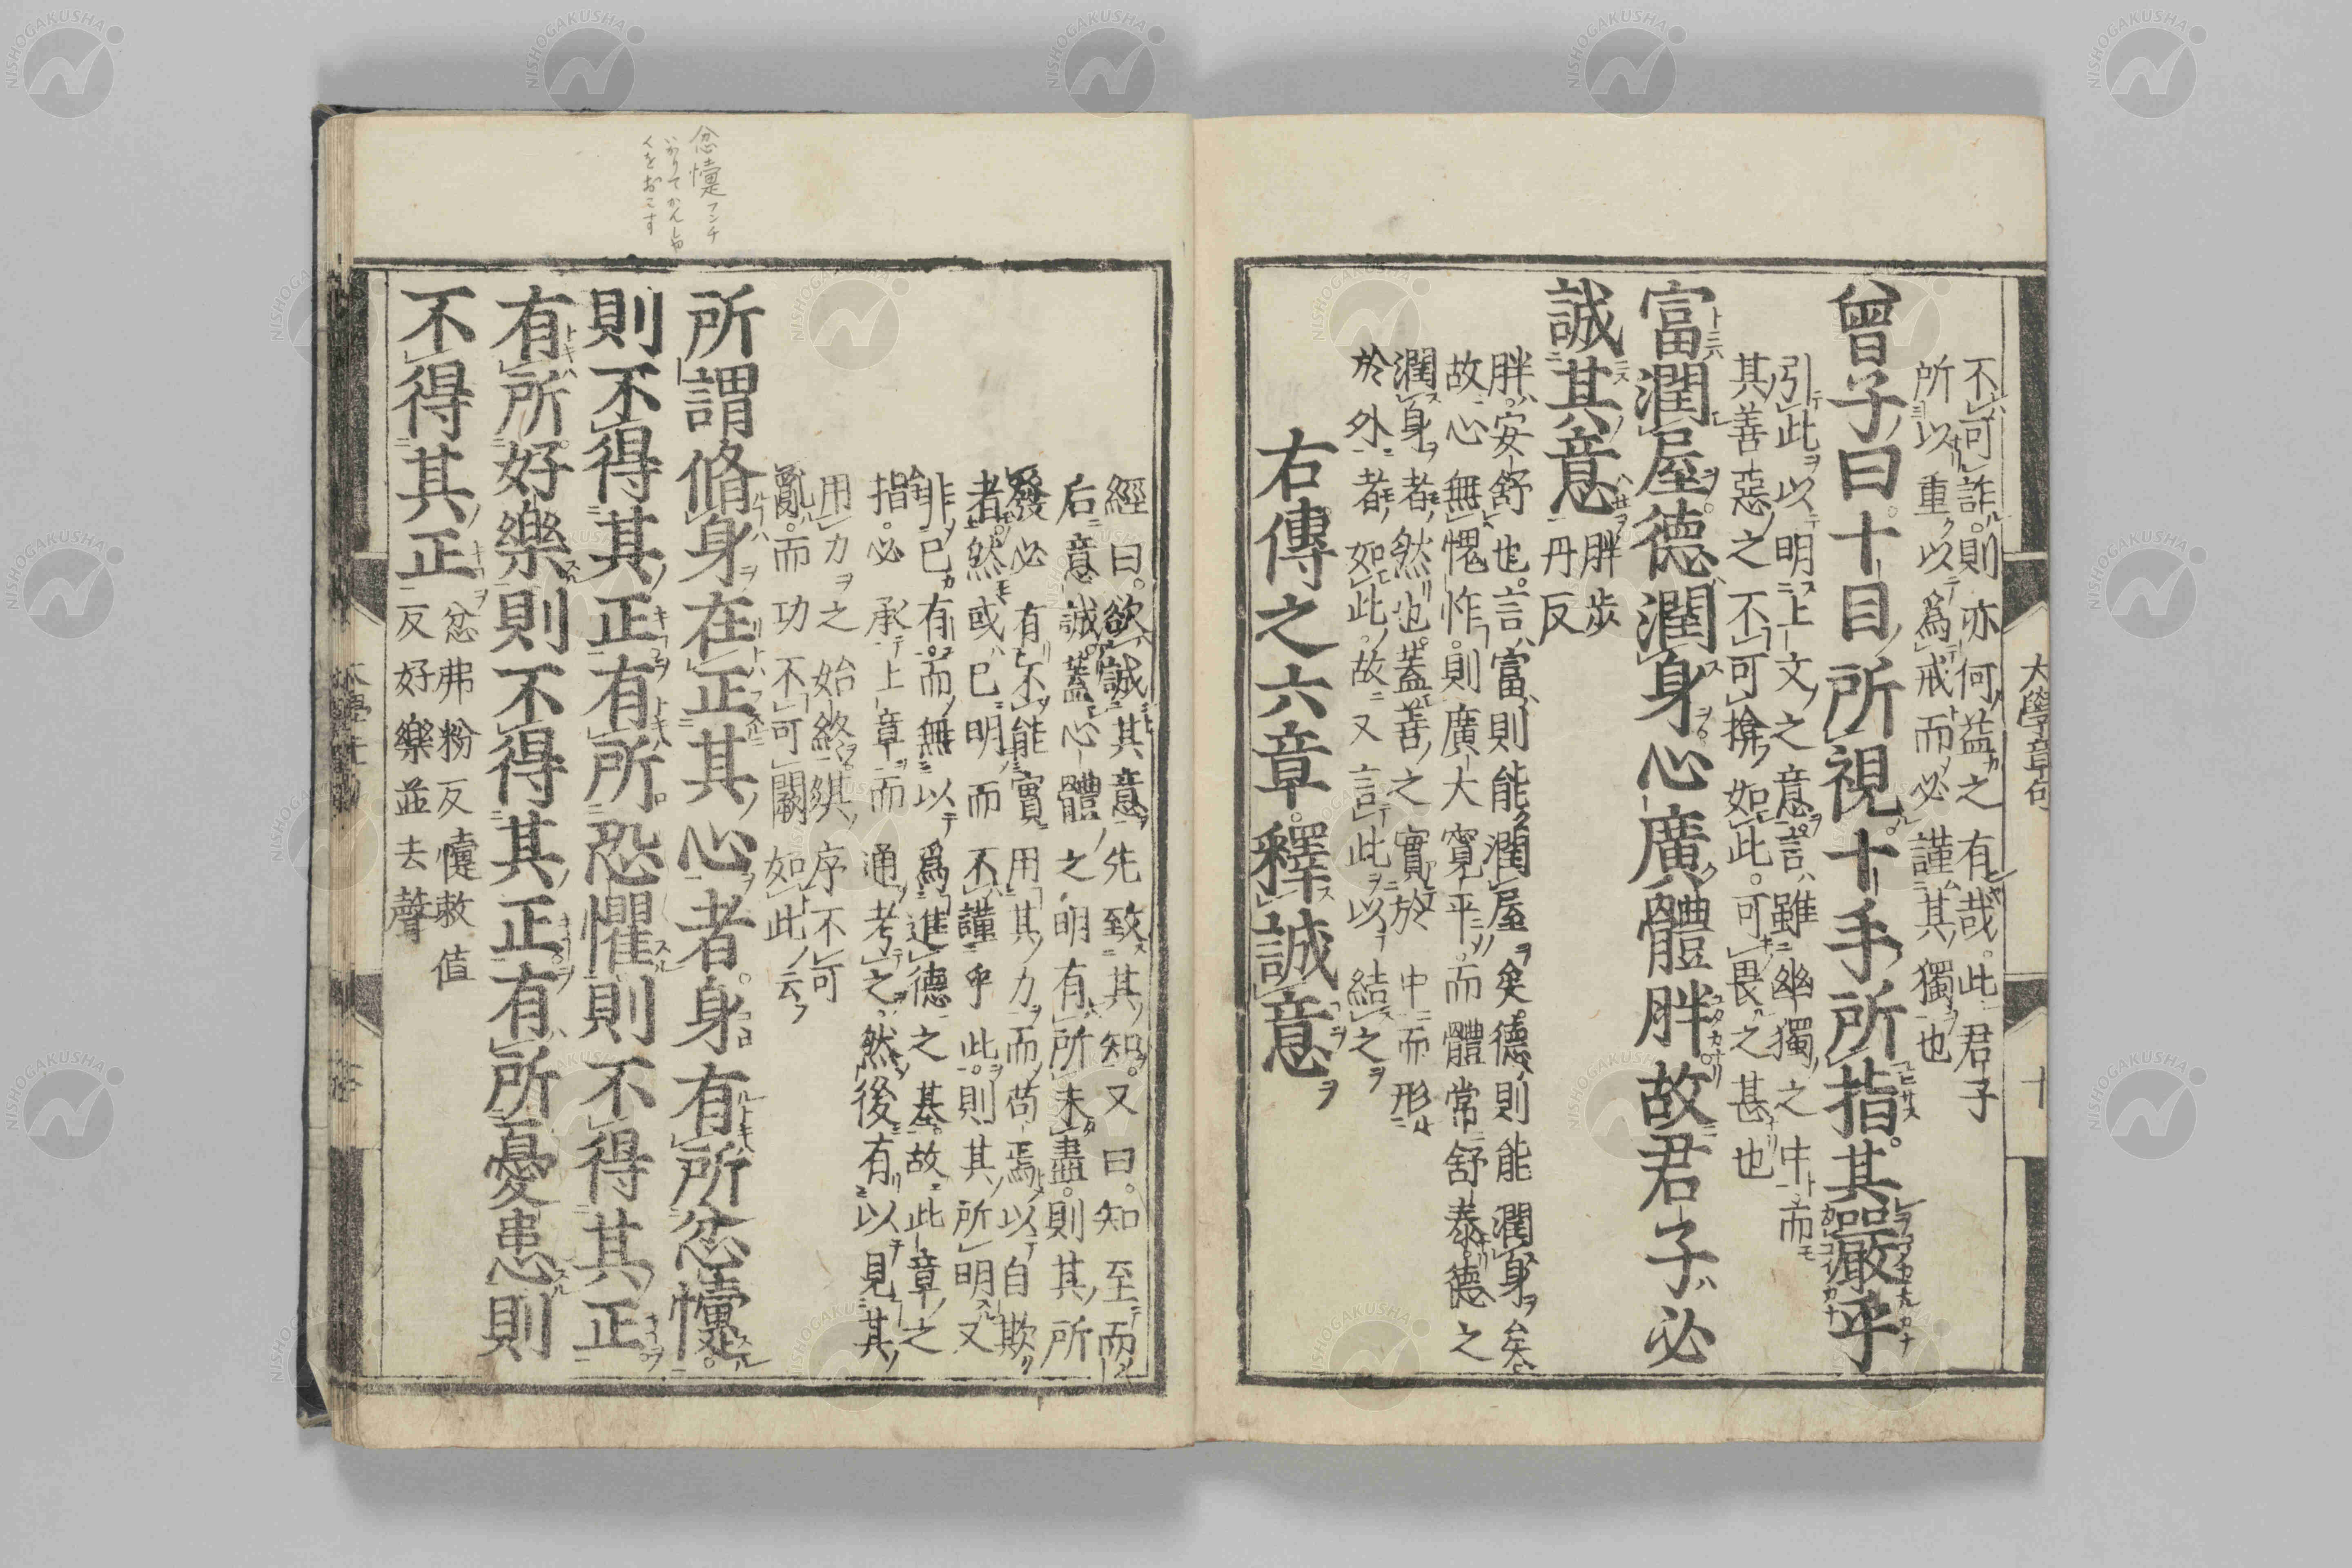 大學章句
十
不可詐。則亦何益之有哉。此君子
所以重以爲戒而必謹其獨也
曾子曰。十目所視。十手所指。其嚴乎
引此以明上文之意。言雖幽獨之中而
其善惡之不可揜如此。可畏之甚也
富潤屋。德潤身。心廣體胖。故君子必
誠其意
胖步
丹反
胖。安舒也。言富則能潤屋矣。德則能潤身矣
故心無愧怍。則廣大寬平。而體常舒泰。德之
潤身者然也。蓋善之實於中而形
於外者如此。故又言此以結之
右傳之六章。釋誠意
經曰。欲誠其意。先致其知。又曰。知至而
后意誠。蓋心體之明有所未盡。則其所
發必有不能實用其力。而苟焉以自欺
者。然或已明而不謹乎此。則其所明又
非已有。而無以爲進德之基。故此章之
指。必承上章而通考之。然後有以見其
用力之始終。其序不可
亂。而功不可闕如此云
所謂脩身在正其心者。身有所忿懥。
則不得其正。有所恐懼。則不得其正。
有所好樂。則不得其正。有所憂患。則
不得其正
忿弗粉反懥敕值
反好樂並去聲
忿懥フンチ
いかりてかんしや
くをおこす
NISHOGAKUSHA